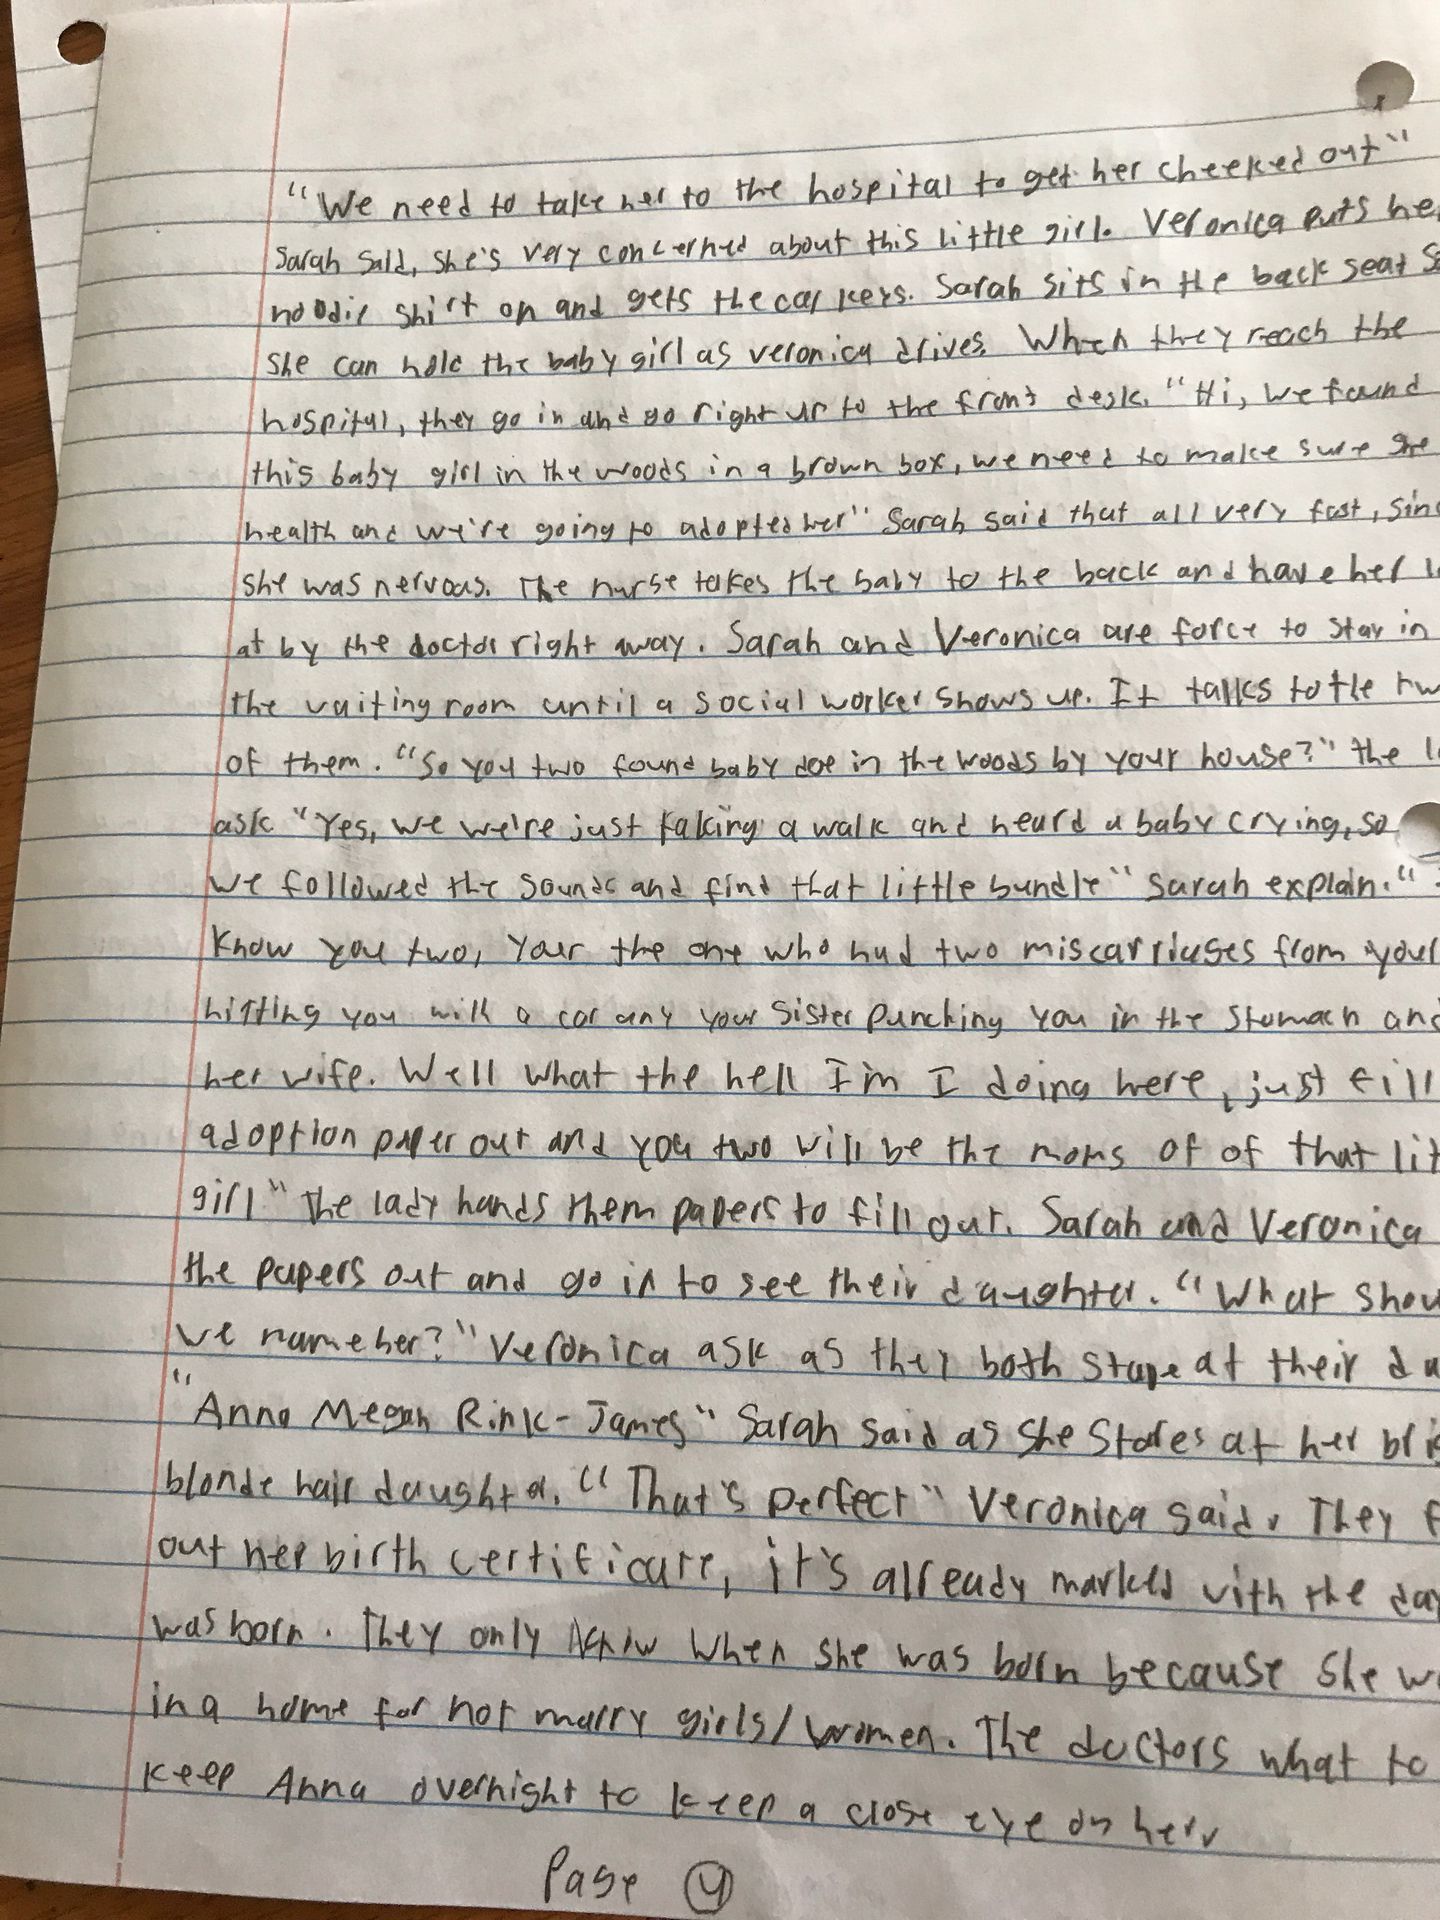 "We need to take her to the hospital to get her cheeked out"
Sarah said, she's very concerned about this little girl. Veronica puts he
hoodie shirt on and gets the car keys. Sarah sits in the back seat So
she can hold the baby girl as veronica drives. When they reach the
hospital, they go in and go right up to the front desk. "Hi, we found
this baby girl in the woods in a brown box, we need to make sure she
health and we're going to adopted her" Sarah said that all very fast, sinc
she was nervous. The nurse takes the baby to the back and have her l
at by the doctor right away. Sarah and Veronica are force to stay in
the waiting room until a social worker shows up. It talks to the tw
of them. "So you two found baby doe in the woods by your house?" the l
ask "Yes, we we're just taking a walk and heard a baby crying, so
we followed the sounds and find that little bundle" Sarah explain."
Know you two, your the one who had two miscarriages from your
hitting you with a car any your sister punching you in the stomach and
her wife. Well what the hell I'm I doing here, just fill
adoption paper out and you two will be the moms of of that lit
girl" The lady hands them papers to fill out. Sarah and Veronica
the papers out and go in to see their daughter. "What shou
we name her?" Veronica ask as they both stare at their da
"Anna Megan Rink-James" Sarah said as she stares at her bri
blonde hair daughter. "That's perfect" Veronica said. They f
out her birth certificate, it's already marked with the day
was born. They only know when she was born because she w
in a home for not marry girls/women. The doctors what to
keep Anna overnight to keep a close eye on her.
Page 4